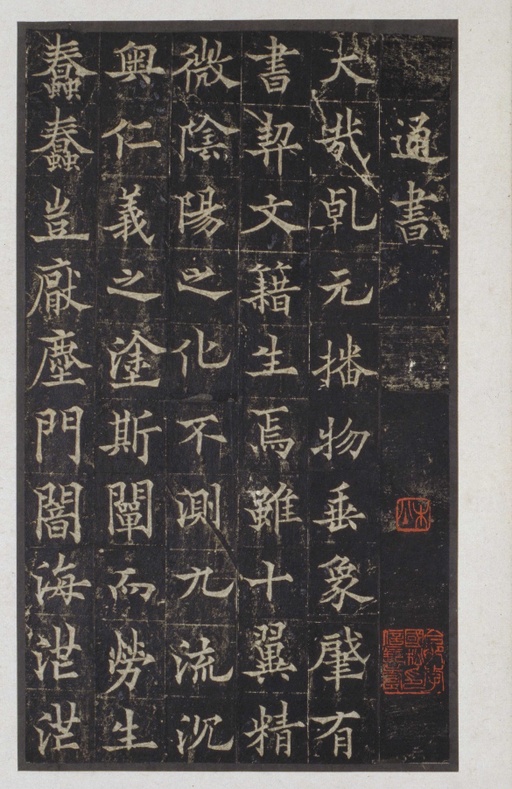 通書
大㢤乹元播物垂象肇有
書契文籍生焉雖十翼精
微陰陽之化不測九流沉
奧仁義之塗斯闡而勞生
蠢蠢豈厭塵門闇海茫茫